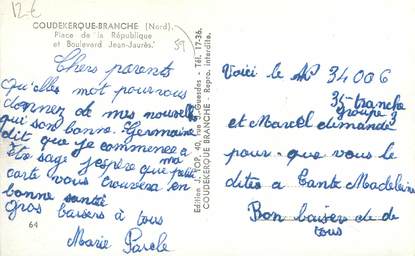 12 €
COUDEKERQUE-BRANCHE (Nord).
Place de la République
et Boulevard Jean-Jaurès.
59
Chers parents
qu'elles mot pour nous
donner de mes nouvelles
qui son bonne. Germaine
dit que je commence a
être sage j'espère que ma petite
carte vous trouvera en
bonne santé
gros baisers à tous
Marie Parole
64
Edition J. TOP, 40, rue J.-Guesdes - Tél. 17-36.
COUDEKERQUE-BRANCHE - Repro. Interdite.
Voici le N° 34006
35 tranche
groupe 3
et Marcel demande
pour que vous le
dites a Tante Madeleine
Bon baisers de
tous